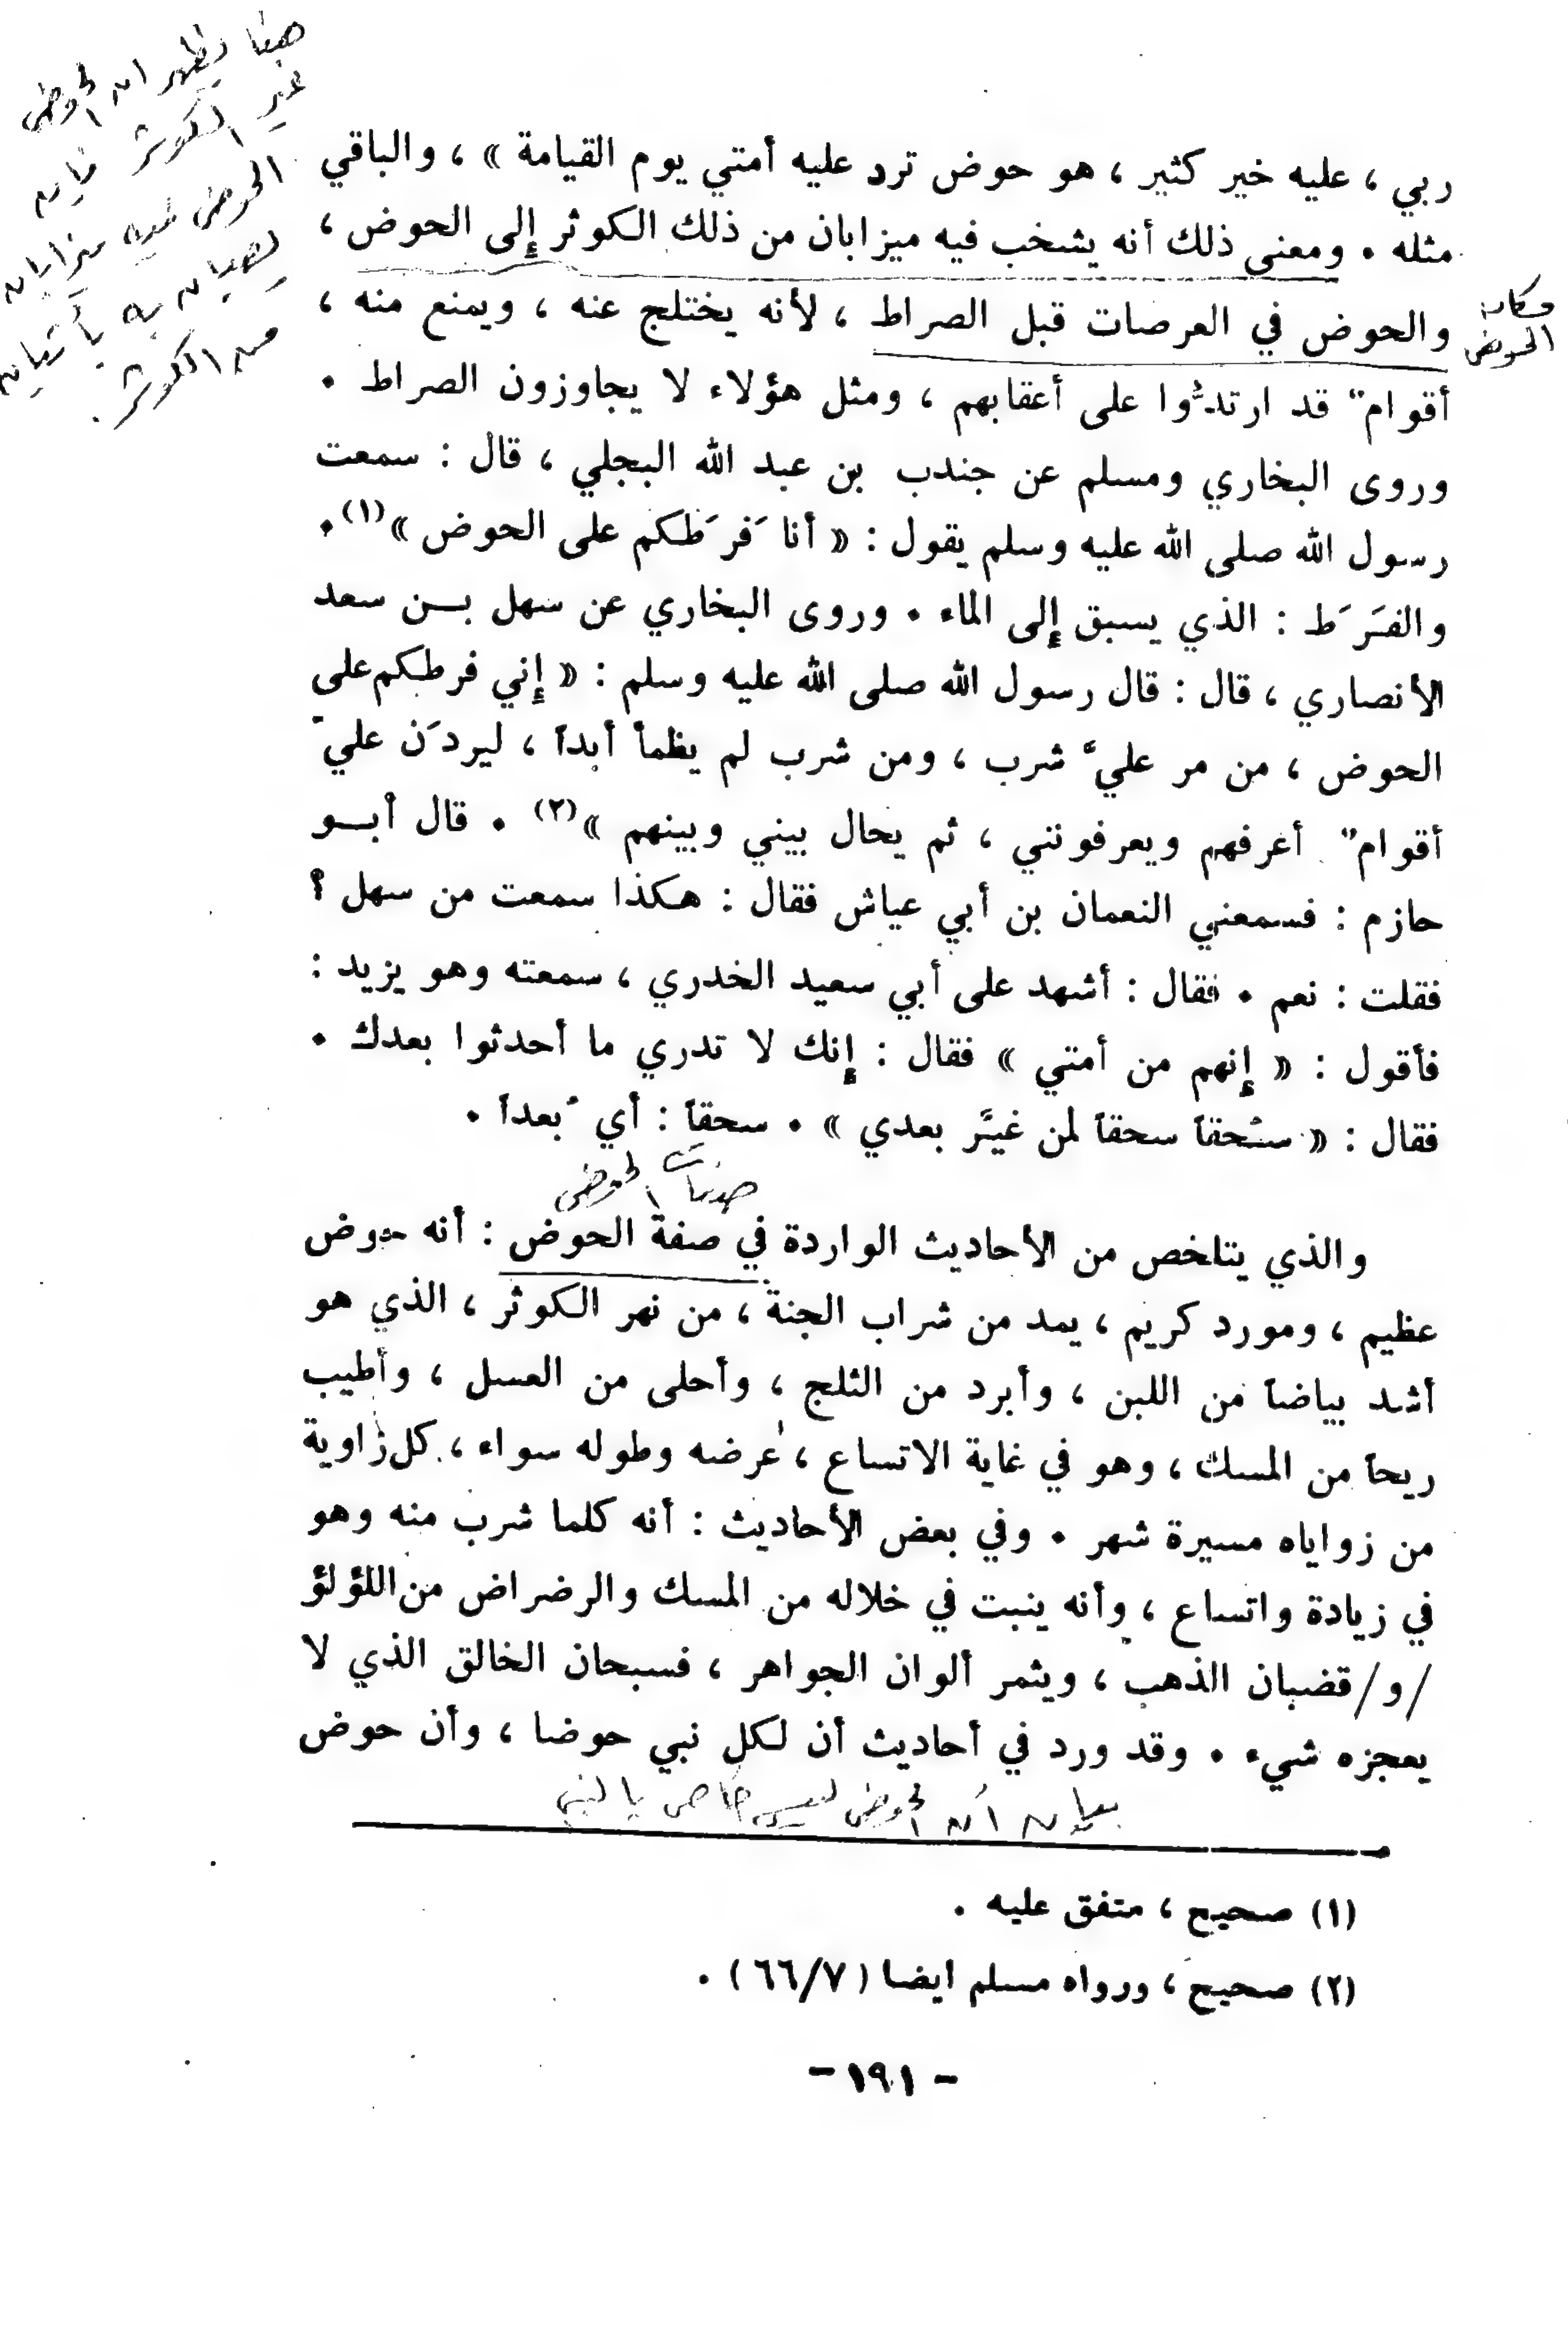 هنا يظهر ان الحوض
غير الكوثر فإن
الحوض فيه ميزابان
يصبان به يأتيان
من الكوثر.
ربي ، عليه خير كثير ، هو حوض ترد عليه أمتي يوم القيامة » ، والباقي
مثله . ومعنى ذلك أنه يشخب فيه ميزابان من ذلك الكوثر إلى الحوض ،
مكان
الحوض
والحوض في العرصات قبل الصراط ، لأنه يختلج عنه ، ويمنع منه ،
أقوامٌ قد ارتدُّوا على أعقابهم ، ومثل هؤلاء لا يجاوزون الصراط .
وروى البخاري ومسلم عن جندب بن عبد الله البجلي ، قال : سمعت
رسول الله صلى الله عليه وسلم يقول : « أنا فَرَطكم على الحوض »(١).
والفَرَط : الذي يسبق إلى الماء . وروى البخاري عن سهل بـــن سعد
الأنصاري ، قال : قال رسول الله صلى الله عليه وسلم : « إني فرطكم على
الحوض ، من مر عليَّ شرب ، ومن شرب لم يظمأ أبداً ، ليردَن عليّ
أقوامٌ أعرفهم ويعرفونني ، ثم يحال بيني وبينهم »(٢) . قال أبــو
حازم : فسمعني النعمان بن أبي عياش فقال : هكذا سمعت من سهل ؟
فقلت : نعم . فقال : أشهد على أبي سعيد الخدري ، سمعته وهو يزيد :
فأقول : « إنهم من أمتي » فقال : إنك لا تدري ما أحدثوا بعدك .
فقال : « سُحقاً سحقاً لمن غيَّر بعدي » . سحقاً : أي بُعداً .
صفات الحوض
والذي يتلخص من الأحاديث الواردة في صفة الحوض : أنه حوض
عظيم ، ومورد كريم ، يمد من شراب الجنة ، من نهر الكوثر ، الذي هو
أشد بياضاً من اللبن ، وأبرد من الثلج ، وأحلى من العسل ، وأطيب
ريحاً من المسك ، وهو في غاية الاتساع ، عرضه وطوله سواء ، كل زاوية
من زواياه مسيرة شهر . وفي بعض الأحاديث : أنه كلما شرب منه وهو
في زيادة واتساع ، وأنه ينبت في خلاله من المسك والرضراض من اللؤلؤ
/و/قضبان الذهب ، ويثمر ألوان الجواهر ، فسبحان الخالق الذي لا
يعجزه شيء . وقد ورد في أحاديث أن لكل نبي حوضا ، وأن حوض
بيان أن الحوض ليس خاص بالنبي
(١) صحيح ، متفق عليه .
(٢) صحيح ، ورواه مسلم ايضا (٦٦/٧) .
- ١٩١ -